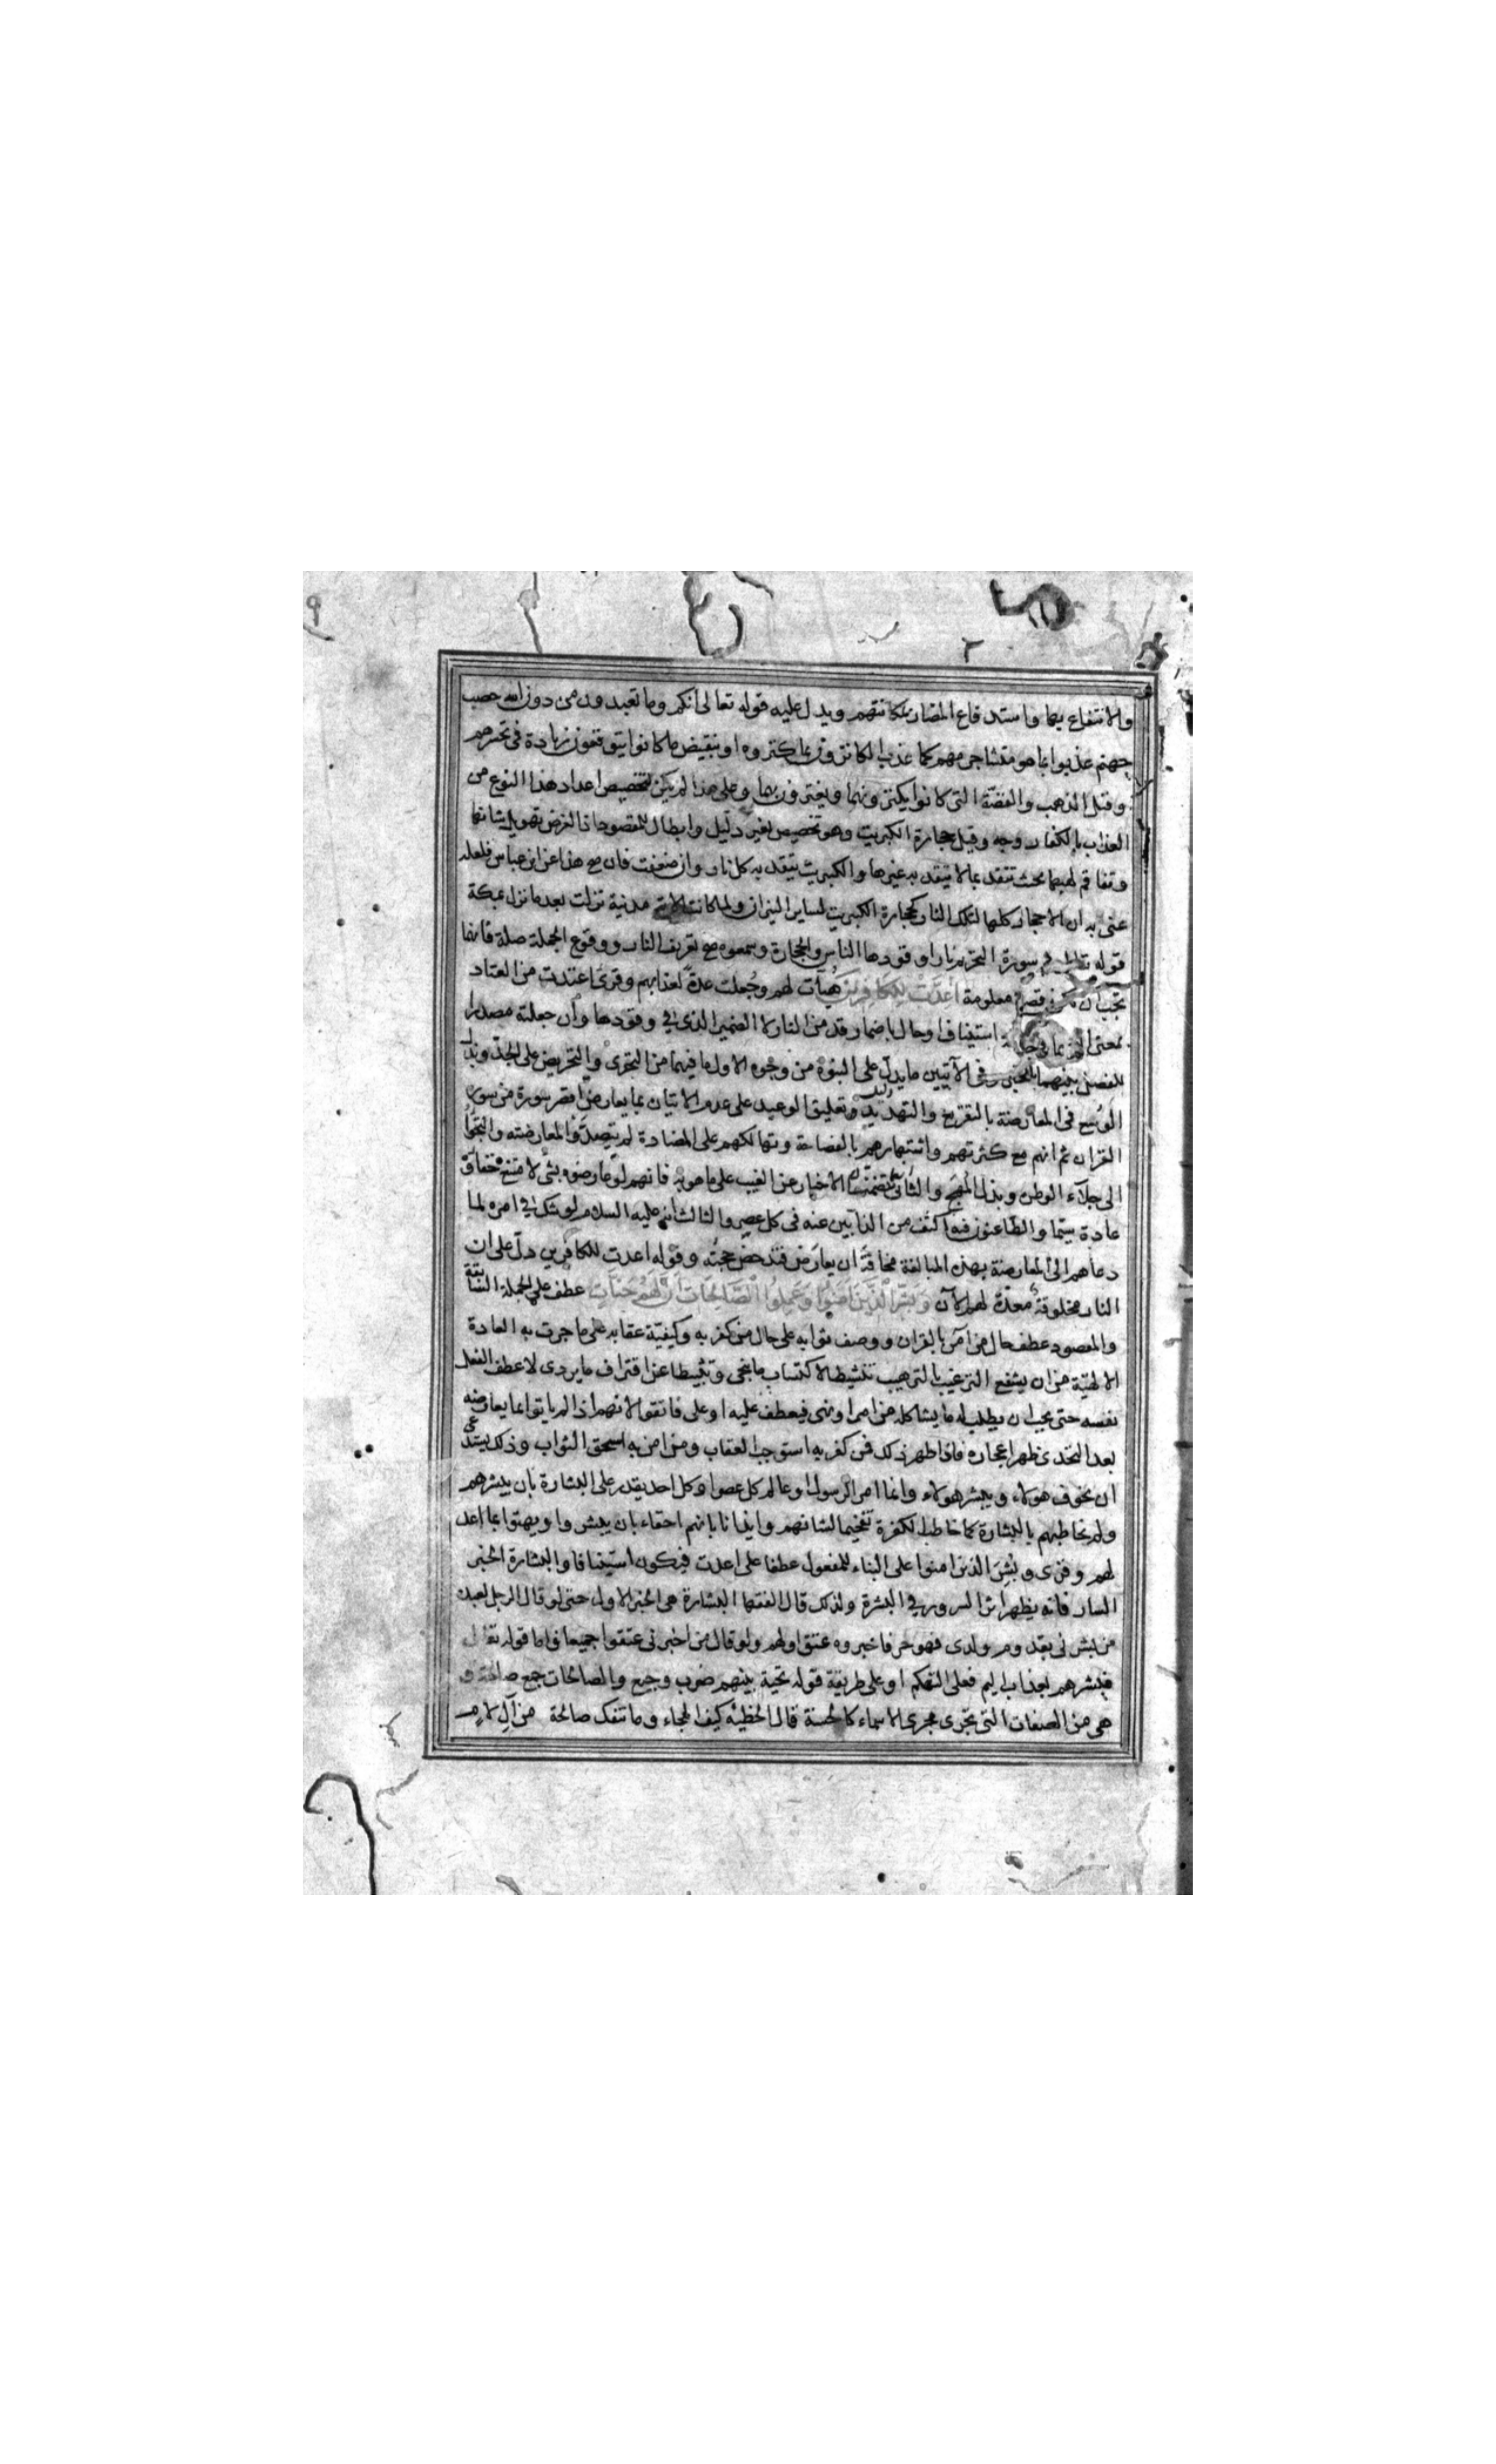 والانتفاع بها واستدفاع المضار بمكانتهم ويدل عليه قوله تعالى انكم وما تعبدون من دون الله حصب
جهنم عذبوا بما هو منشا جرمهم كما عذب الكانزون بما كنزوه او بنقيض ما كانوا يتوقعون زيادة فى تحسرهم
وقيل الذهب والفضة التى كانوا يكنزونهما ويغترون بها وعلى هذا لم يكن لتخصيص اعداد هذا النوع من
العذاب بالكفار وجه وقيل حجارة الكبريت وهو تخصيص بغير دليل وابطال للمقصود اذ الغرض تهويل شانها
وتفاقم لهبها بحيث تتقد بما لا يتقد به غيرها والكبريت يتقد به كل نار وان ضعفت فان صح هذا عن ابن عباس فلعله
عنى به ان الاحجار كلها لتلك النار كحجارة الكبريت لساير النيران ولما كانت الاية مدنية نزلت بعد ما نزل بمكة
قوله تعالى فى سورة التحريم نارا وقودها الناس والحجارة وسمعوه صح تعريف النار ووقوع الجملة صلة فانها
تجب ان تكون قصة معلومة أعدت للكافرين هيأت لهم وجعلت عدة لعذابهم وقرى اعتدت من العتاد
بمعنى استيناف او حال باضمار قد من النار لا الضمير الذى فى وقودها وان جعلته مصدرا
للفصل بينهما بالخبر وفى الآيتين ما يدل على النبوة من وجوه الاول ما فيهما من التحدى والتحريض على الجد وبذل
الوسع فى المعارضة بالتقريع والتهديد وتعليق الوعيد على عدم الاتيان بما يعارض اقصر سورة من سور
القران ثم انهم مع كثرتهم واشتهارهم بالفصاحة وتهالكهم على المضادة لم يتصدوا لمعارضته والتجوا
الى جلاء الوطن وبذل المهج والثانى تضمنهما الاخبار عن الغيب على ما هو به فانهم لو عارضوه بشئ لامتنع خفاؤه
عادة سيما والطاعنون فيه اكثف من الذابين عنه فى كل عصر والثالث انه عليه السلام لو شك فى امره لما
دعاهم الى المعارضة بهذه المبالغة مخافة ان يعارض فتدحض حجته وقوله اعدت للكافرين دل على ان
النار مخلوقة معدة لهم الآن وبشر الذين امنوا وعملوا الصالحات أن لهم جنات عطف على الجملة السابقة
والمقصود عطف حال من آمن بالقران ووصف ثوابه على حال من كفر به وكيفية عقابه على ما جرت به العادة
الالهية من ان يشفع الترغيب بالترهيب تنشيطا لاكتساب ما ينجى وتثبيطا عن اقتراف ما يردى لا عطف الفعل
نفسه حتى يجب ان يطلب له ما يشاكله من امر او نهى فيعطف عليه او على فاتقوا لانهم اذا لم ياتوا بما يعارضه
بعد التحدى ظهر اعجازه فاذا ظهر ذلك فمن كفر به استوجب العقاب ومن امن به استحق الثواب وذلك يستدعى
ان يخوف هولاء ويبشر هولاء وانما امر الرسول او عالم كل عصر او كل احد يقدر على البشارة بان يبشرهم
ولم يخاطبهم بالبشارة كما خاطب الكفرة تفخيما لشانهم وايذانا بانهم احقاء بان يبشروا ويهنوا بما اعد
لهم وقرى وبشر الذين امنوا على البناء للمفعول عطفا على اعدت فيكون استينافا والبشارة الخبر
السار فانه يظهر اثر السرور فى البشرة ولذلك قال الفقها البشارة هى الخبر الاول حتى لو قال الرجل لعبده
من بشرنى بقدوم ولدى فهو حر فاخبروه عتق اولهم ولو قال من اخبرنى عتقوا جميعا واما قوله تعالى
فبشرهم بعذاب اليم فعلى التهكم او على طريقة قوله تحية بينهم ضرب وجيع والصالحات جمع صالحة و
هى من الصفات التى تجرى مجرى الاسماء كالحسنة قال الحطيئة كيف الهجاء وما تنفك صالحة من آل لام